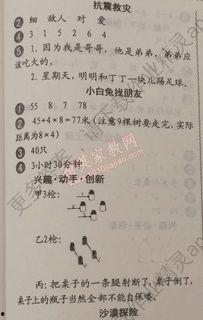 抗震救灾
② 细 敌人 对 爱
④ 3 1 5 2 6 4
⑤ 1. 因为我是哥哥，他是弟弟，弟弟应
该吃大的。
2. 星期天，明明和丁丁一块儿踢足球。
小白兔找朋友
① 55 8 7 78
② 45+4×8=77米(注意9棵树要走完，实际
距离为8×4)
③ 40只
④ 3小时30分钟
兴趣·动手·创新
甲3枪：
乙2枪：
丙：把桌子的一条腿射断了，桌子倒了，
桌子上的瓶子当然全部不能自保喽。
沙漠探险